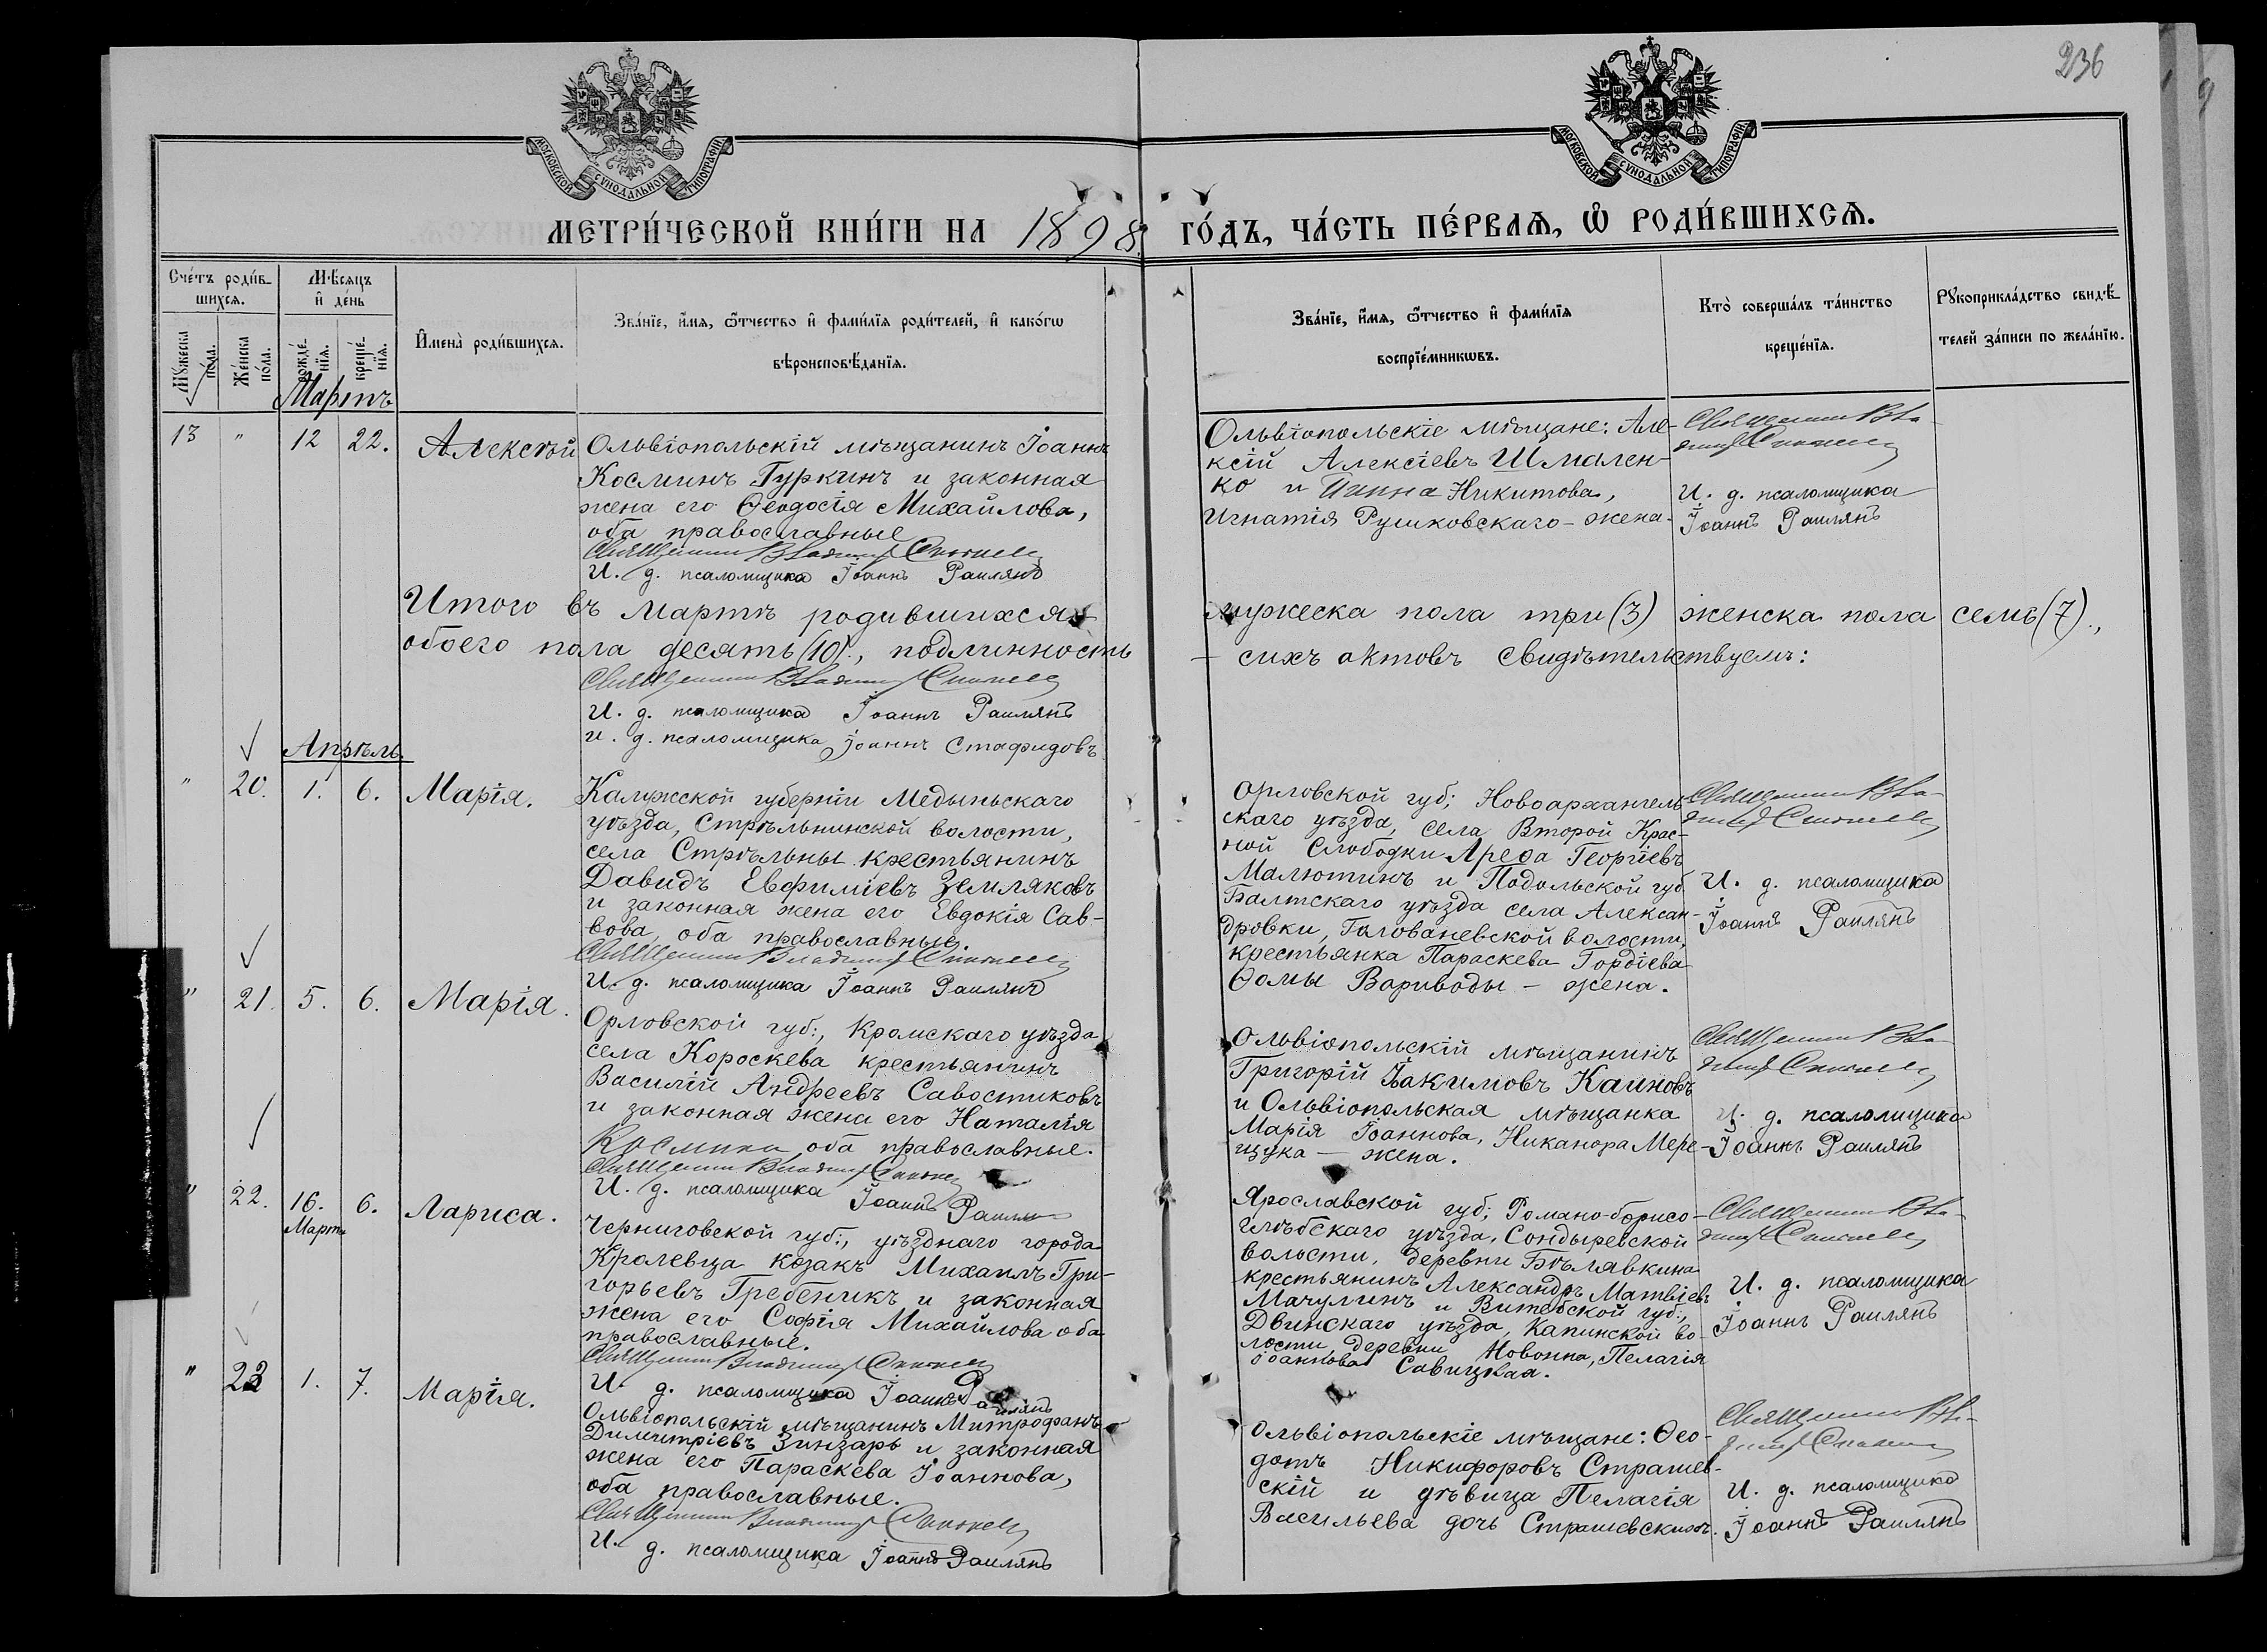 236
МОСКОВСКОЙ СУНОДАЛЬНОЙ ТИПОГРАФІИ
МОСКОВСКОЙ СУНОДАЛЬНОЙ ТИПОГРАФІИ
МЕТРИ́ЧЕСКОЙ КНИ́ГИ НА 1898 ГО́ДЪ, ЧА́СТЬ ПЕ́РВАѦ, Ѡ҆ РОДИ́ВШИХСѦ.
Сче́тъ роди́в-
шихсѧ.
Мꙋ́жеска по́ла.
Же́нска по́ла.
Мѣ́сѧцъ
и҆ де́нь
рожде́-
нїѧ.
креще́-
нїѧ.
И҆мена̀ роди́вшихсѧ.
Зва́нїе, и҆́мѧ, ѻ҆́тчество и҆ фами́лїѧ роди́телей, и҆ како́гѡ
вѣроисповѣ́данїѧ.
Зва́нїе, и҆́мѧ, ѻ҆́тчество и҆ фами́лїѧ
воспрїе́мникѡвъ.
Кто̀ соверша́лъ та́инство
креще́нїѧ.
Рꙋкоприкла́дство свидѣ́-
телей за́писи по жела́нїю.
Мартъ
13 " 12 22. Алексѣй
Ольвіопольскій мѣщанинъ Іоаннъ
Косминъ Гуркинъ и законная
жена его Ѳеодосія Михайлова,
оба православные
Священник Владимир
И. д. псаломщика Іоаннъ Раилянъ
Ольвіопольскіе мѣщане: Але-
ксій Алексіевъ Шмален-
ко и Никитова,
Игнатія Рушковскаго - жена.
Священник Вла-
димир
И. д. псаломщика
Іоаннъ Раилянъ
Итого въ Мартѣ родившихся мужеска пола три (3) женска пола семь (7).,
обоего пола десять (10)., подлинность сихъ актовъ свидѣтельствуемъ:
Священник Владимир
И. д. псаломщика Іоаннъ Раилянъ
и. д. псаломщика Іоаннъ Стафидовъ
Апрѣль
" 20. 1. 6. Марія.
Калужской губерніи Медыньскаго
уѣзда, Стрѣльнинской волости,
села Стрѣльны крестьянинъ
Давидъ Евфиміевъ Земляковъ
и законная жена его Евдокія Сав-
вова, оба православные.
Священник Владимир
И. д. псаломщика Іоаннъ Раилянъ
Орловской губ; Новоархангель-
скаго уѣзда, села Второй Крас-
ной Слободки Ареѳа Георгіевъ
Малютинъ и Подольской губ.
Балтскаго уѣзда села Алексан-
дровки, Голованевской волости,
крестьянка Параскева Гордіева
Ѳомы Вариводы - жена.
Священник Вла-
димир
И. д. псаломщика
Іоаннъ Раилянъ
" 21. 5. 6. Марія.
Орловской губ:, Кромскаго уѣзда
села Короскева крестьянинъ
Василій Андреевъ Савостиковъ
и законная жена его Наталія
Космина оба православные.
Священник Владимир
И. д. псаломщика Іоаннъ Раилянъ
Ольвіопольскій мѣщанинъ
Григорій Іакимовъ Каиновъ
и Ольвіопольская мѣщанка
Марія Іоаннова, Никанора Мере-
щука - жена.
Священник Вла-
димир
И. д. псаломщика
Іоаннъ Раилянъ
" 22. 16. Марта 6. Лариса.
Черниговской губ:, уѣзднаго города
Кролевца козакъ Михаилъ Гри-
горьевъ Гребеникъ и законная
жена его Софія Михайлова оба
православные.
Священник Владимир
И. д. псаломщика Іоаннъ Раилянъ
Ярославской губ; Романо-борисо-
глѣбскаго уѣзда, Сондыревской
волости, деревни Бѣлявкина
крестьянинъ Александръ Матвіевъ
Мачулинъ и Витебской губ:,
Двинскаго уѣзда, Капинской во-
лости, деревни Новонка, Пелагія
Іоаннова Савицкая.
Священник Вла-
димир
И. д. псаломщика
Іоаннъ Раилянъ
" 23 1. 7. Марія.
Ольвіопольскій мѣщанинъ Митрофанъ
Димитріевъ Зинзаръ и законная
жена его Параскева Іоаннова,
оба православные.
Священник Владимир
И. д. псаломщика Іоаннъ Раилянъ
Ольвіопольскіе мѣщане: Ѳео-
дотъ Никифоровъ Страшев-
скій и дѣвица Пелагія
Васильева дочь Страшевскихъ.
Священник Вла-
димир
И. д. псаломщика
Іоаннъ Раилянъ